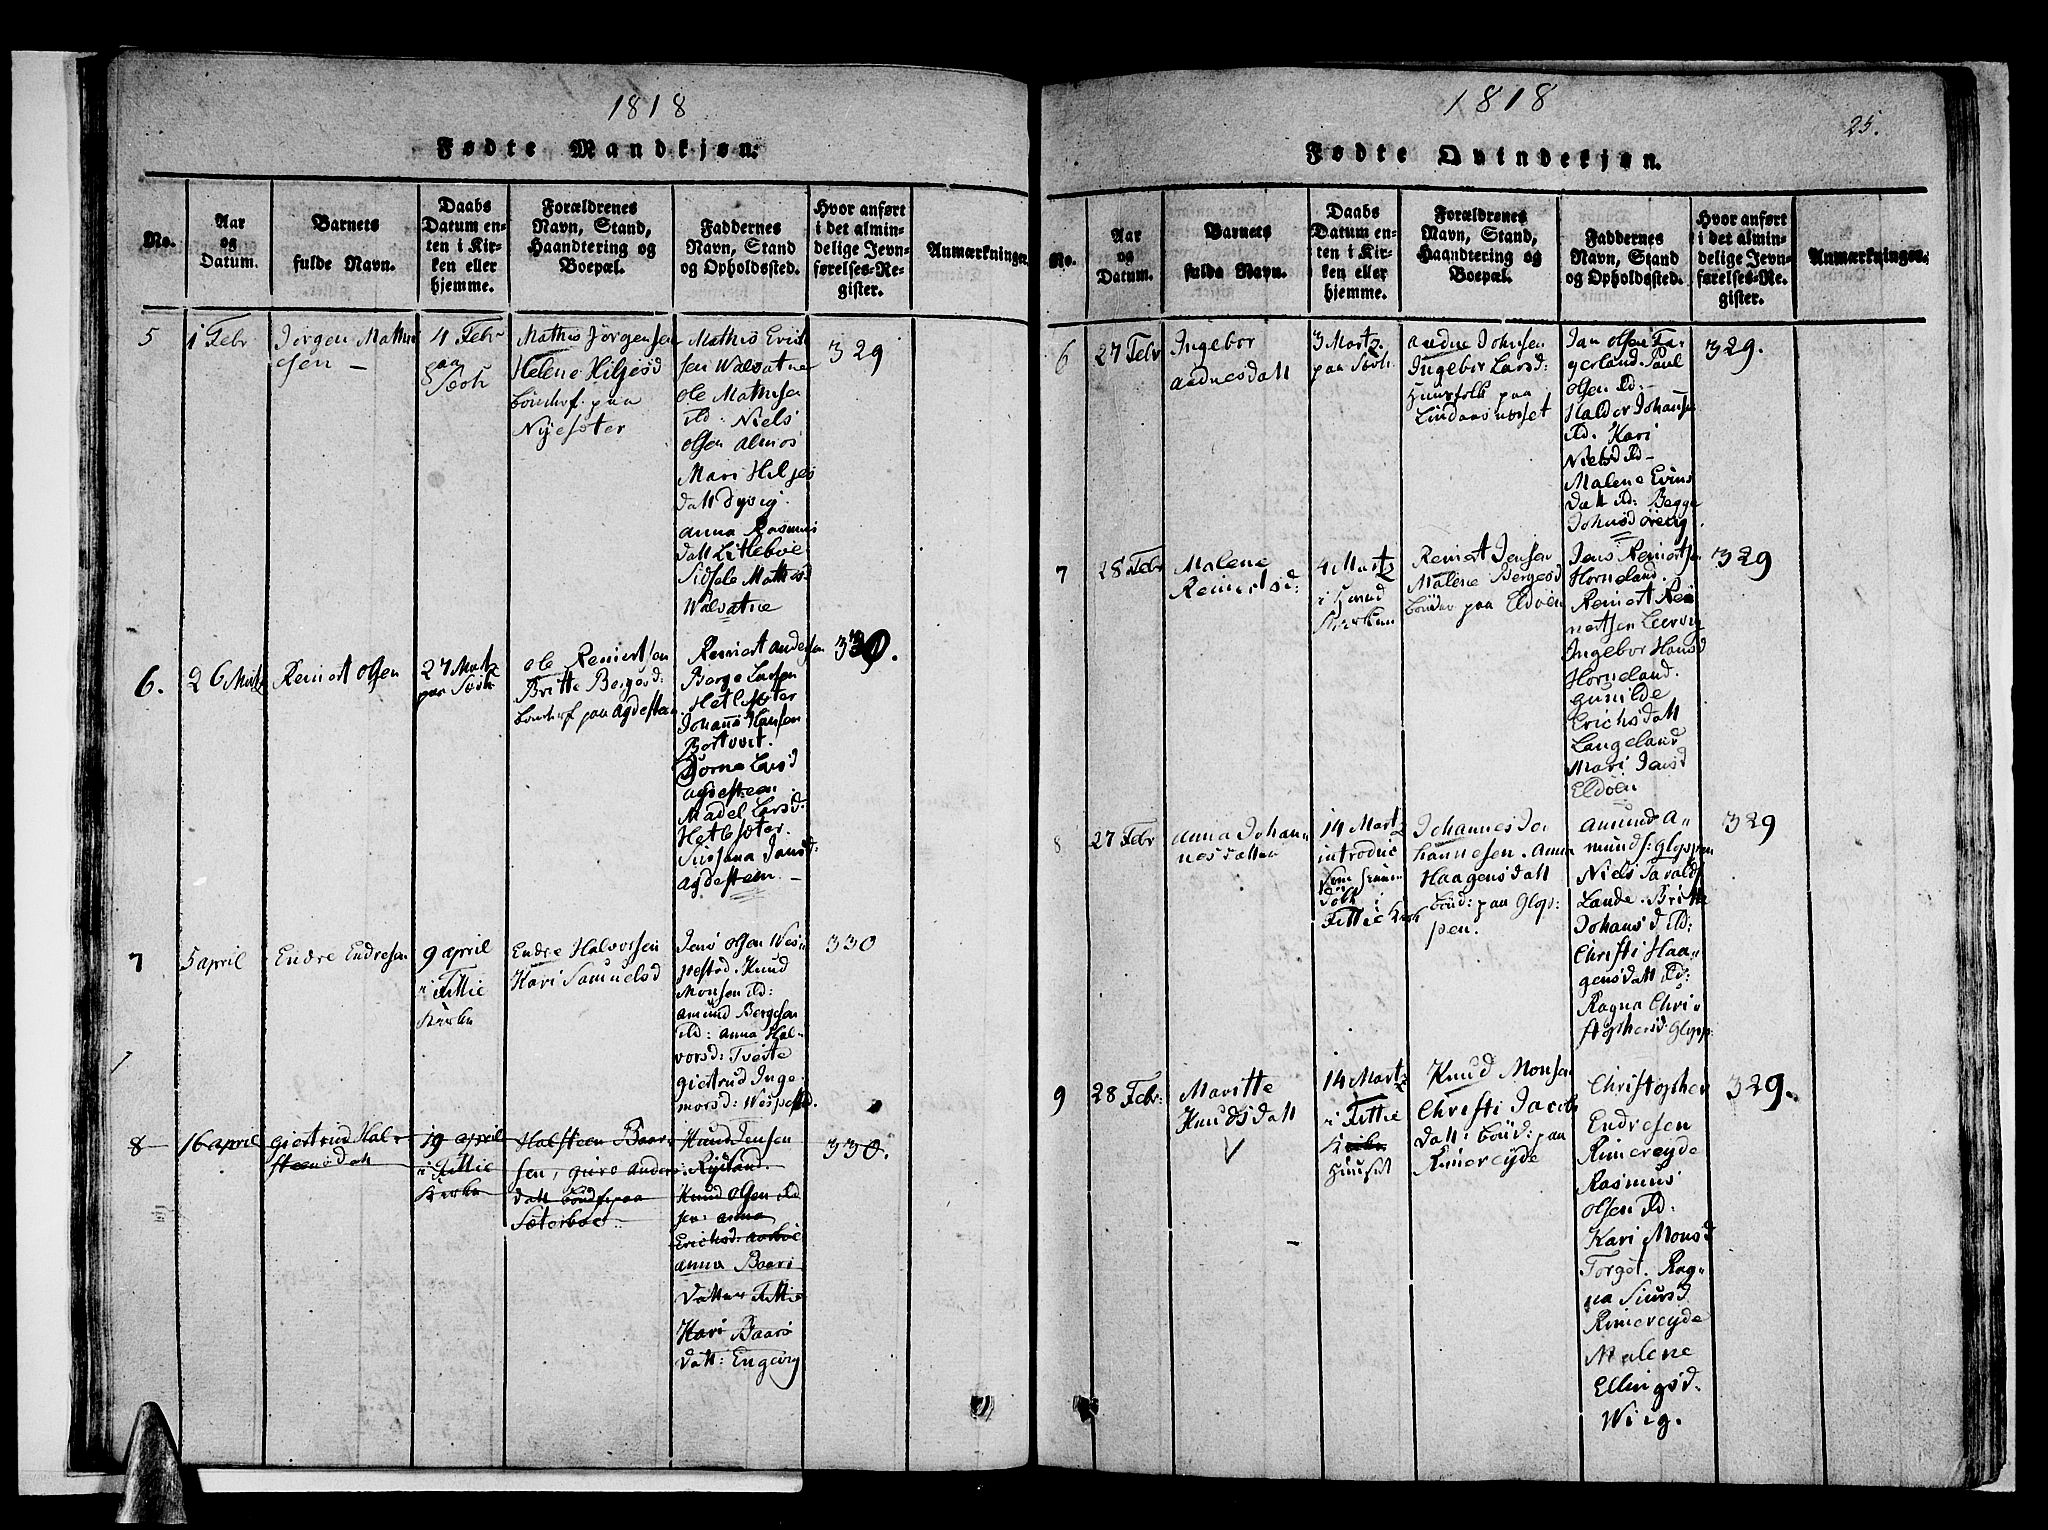 1818
Fødte Mandkjøn.
No.
Aar
og
Datum.
Barnets
fulde Navn.
Daabs
Datum en-
ten i Kir-
ken eller
hjemme.
Forældrenes
Navn, Stand,
Haandtering og
Boepæl.
Faddernes
Navn, Stand
og Opholdssted.
Hvor anført
i det almin-
delige Jevn-
førelses-Re-
gister.
Anmærkninger.
5
1 Febr
Jørgen Mathi
esen
4 Febr
paa
Mathis Jørgensen
Helene Hiljesd
paa
Nyesøter
Mathis Erich
sen Walvatne
Ole Mathisen
ibd: Niels
Olsen Almos
Mari Hiljes
datt Dyvig.
Anna Rasmus
datt Litleboe
Sidsele Mathisd
Walvatne
329
6.
26 Mrtz
Reinert Olsen
27 Martz
paa
Ole Reinertsen
Britte Bergesd:
paa Agdesteen
Reinert Andersen
Berge Larsen
Hetlesøter
Johans Hansen
Bortvet.
Larsd
Agdesteen
Madel Larsd:
Hetlesøter.
Susanna Jansd:
Agdesteen
330.
7
5 April
Endre Endresen
9 April
i Fittie
Kirke
Endre Halvorsen
Kari Samuelsd
Jens Olsen Wes-
pestad. Knud
Monsen ibd:
Amund Bergesen
ibd: Anna Hal-
vorsd: Tveite
Giertrud Inge-
morsd: Wespestad.
330
8
16 April
Giertrud Hal-
steensdatt
19 April
i Fittie
Kirke
Halsteen Baar-
sen, Guro Anders
datt paa
Søterboe
Knud Jensen
Rysland.
Knud Olsen ibd
Anna
Erichsd:
Anna Baars
datter Fittie
Kari Baars
datt: Engevig
330.
1818
25.
Fødte Qvindekjøn.
No.
Aar
og
Datum.
Barnets
fulde Navn.
Daabs
Datum en-
ten i Kir-
ken eller
hjemme.
Forældrenes
Navn, Stand,
Haandtering og
Boepæl.
Faddernes
Navn, Stand
og Opholdssted.
Hvor anført
i det almin-
delige Jevn-
førelses-Re-
gister.
Anmærkninger.
6
27 Febr
Ingebor
Aadnesdatt
3 Martz
paa
Aadne Johnsen
Ingebor Larsd:
Huusfolk paa
Lindaasnæsset
Jan Olsen Fa-
gerland. Paul
Olsen ibd.
Haldor Johansen
ibd. Kari
Nielsd ibd
Malene Evins
datt ibd: Begge
Johnsd
329.
7
28 Febr
Malene
Reinertsd:
4 Martz
i
Kirken
Reinert Jensen
Malene Bergesd
bønder paa Eldøen
Jens Reinertsen
Horneland.
Reinert Rei
nertsen Leervig
Ingebor Hansd
Horneland.
Gunilde
Erichsdatt
Langeland
Mari Jensd
Eldøen
329
8
27 Febr
Anna Johan-
nesdatter
14 Martz
introduc
i
Fittie Kirk
Johannes Jo-
hannesen. Anna
Haagensdatt
bønd: paa Glop-
pen.
Amund A-
munds:
Niels
Lande. Britte
Johansd ibd:
Christi Haa-
gensdatt ibd:
Ragna Chri-
stophersd:
329
9
28 Febr:
Maritte
Knudsdatt
14 Martz
i Fittie
Kirke
Huuset
Knud Monsen
Christi Jacobs
datt: bønd: paa
Rimereyde
Christopher
Endresen
Rimereyde
Rasmus
Olsen ibd:
Kari Monsd
Rag-
na Siursd
Rimereyde
Malene
Ellingsd.
Wiig.
329.